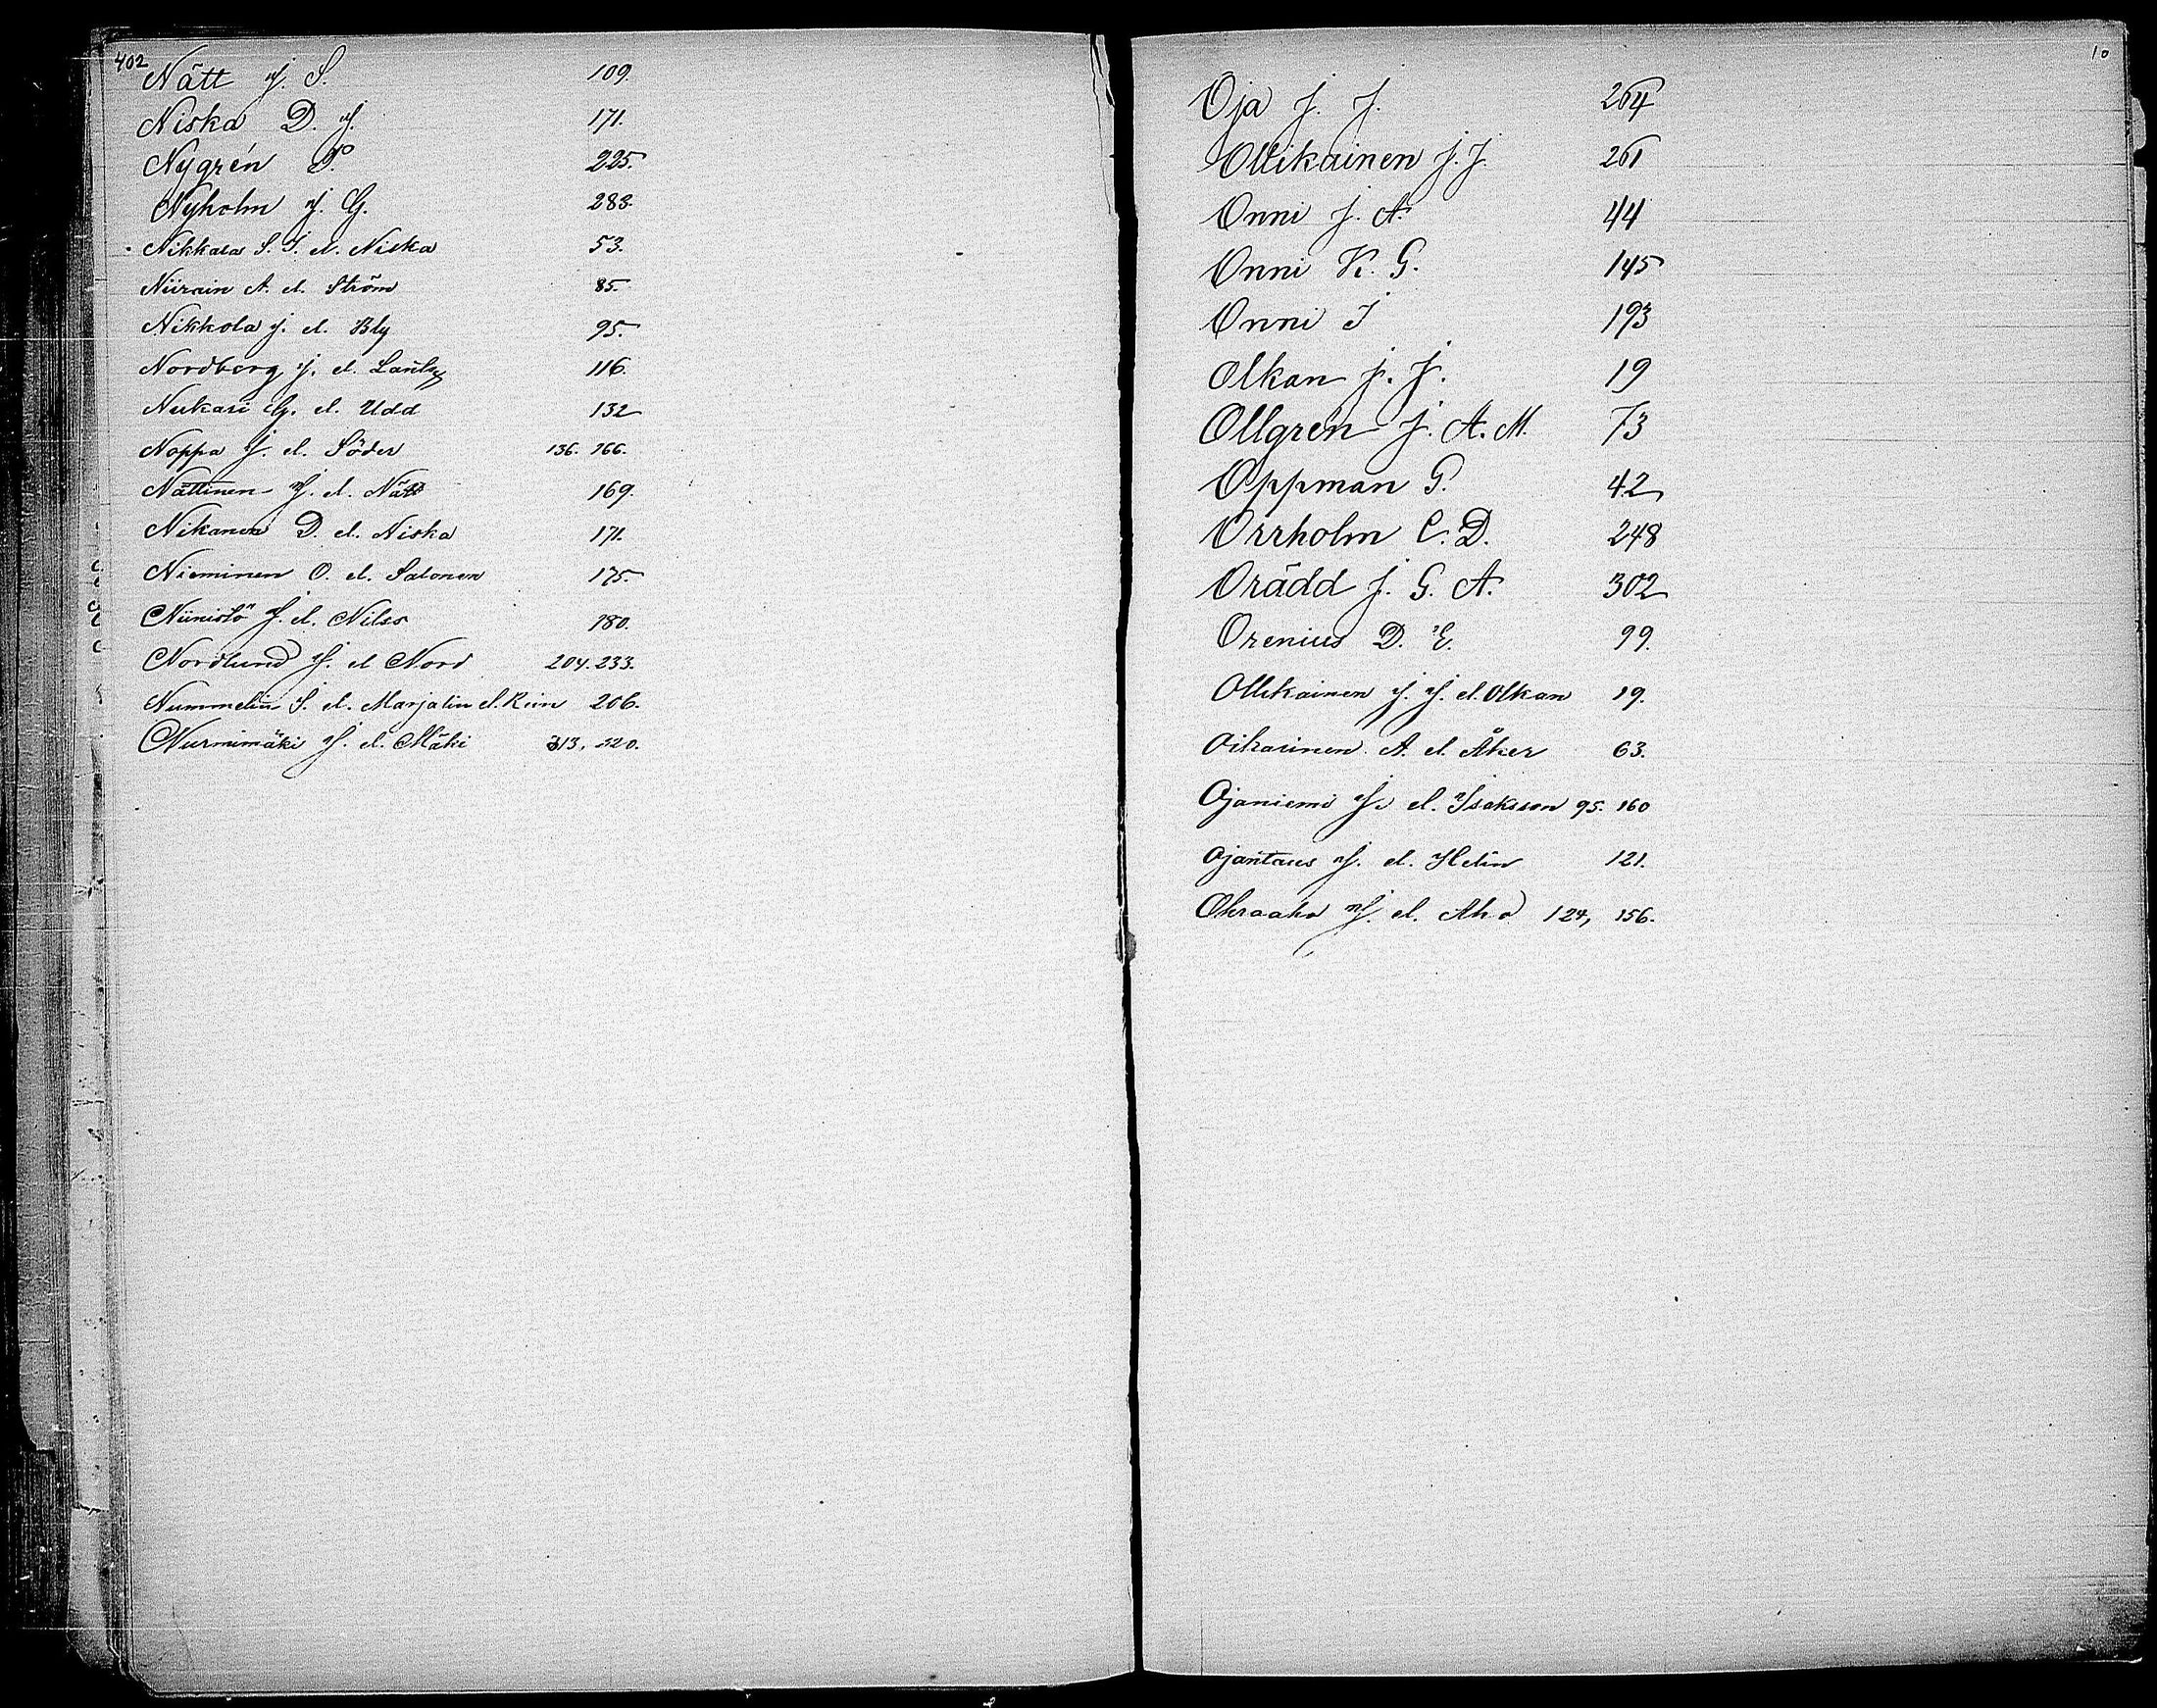 402
Nätt J. S. 109.
Niska D. J. 171.
Nygrén P. 225.
Nyholm J. G. 283.
Nikkala S. J. el. Niska 53.
Niirain A. el. Ström 85.
Nikkola J. el. Bly 95.
Nordberg J. el. 116.
Nukari G. el. Udd 132
Noppa J. el. Söder 136. 166.
Nättinen J. el. Nätt 169.
Nikanen D. el. Niska 171.
Nieminen O. el. Salonen 175.
Niinistö J. el. Nilss 180.
Nordlund J. el Nord 204. 233.
Nummelin S. el. Marjalin el. Rein 206.
Nurmimäki J. el. Mäki 313, 320.
10
Oja J. J. 264
Ollikainen J. J. 261
Onni J. A. 44
Onni K. G. 145
Onni J 193
Olkan J. J. 19
Ollgrén J. A. M. 73
Oppman G. 42
Orrholm C. D. 248
Orädd J. G. A. 302
Orenius D. E. 99.
Ollikainen J. J. el. Olkan 19.
Oikarinen A. el. Åker 63.
Ojaniemi J. el. Isaksson 95. 160
Ojantaus J. el. Helin 121.
Ohraaho J. el. Aho 124, 156.